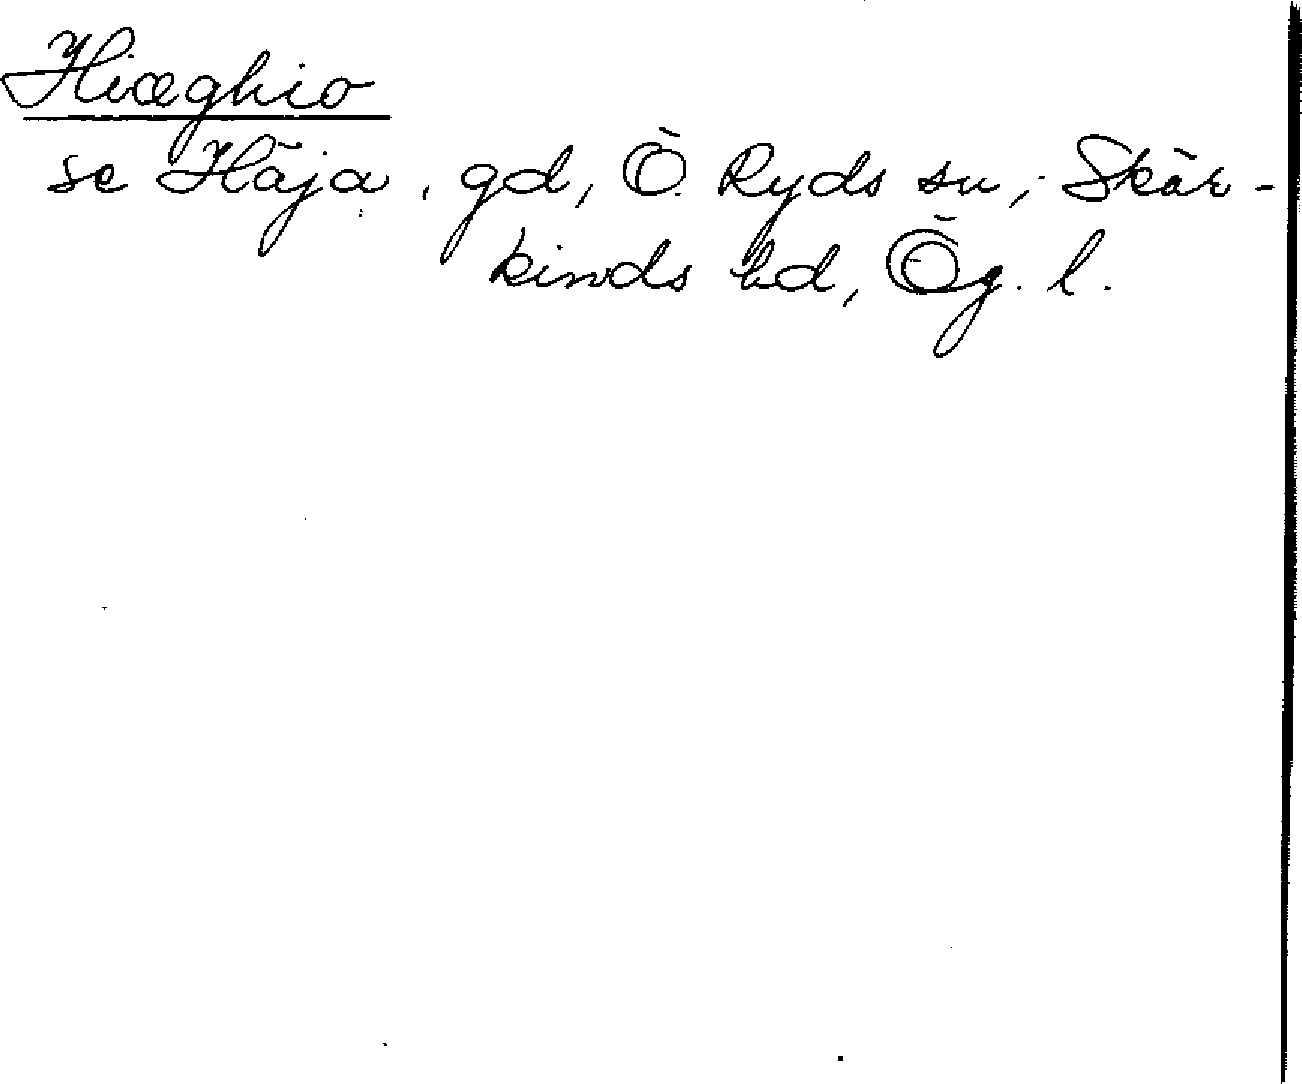 Hiæghio
se Häja, gd, Ö. Ryds sn, Skär-
kinds hd, Ög. l.